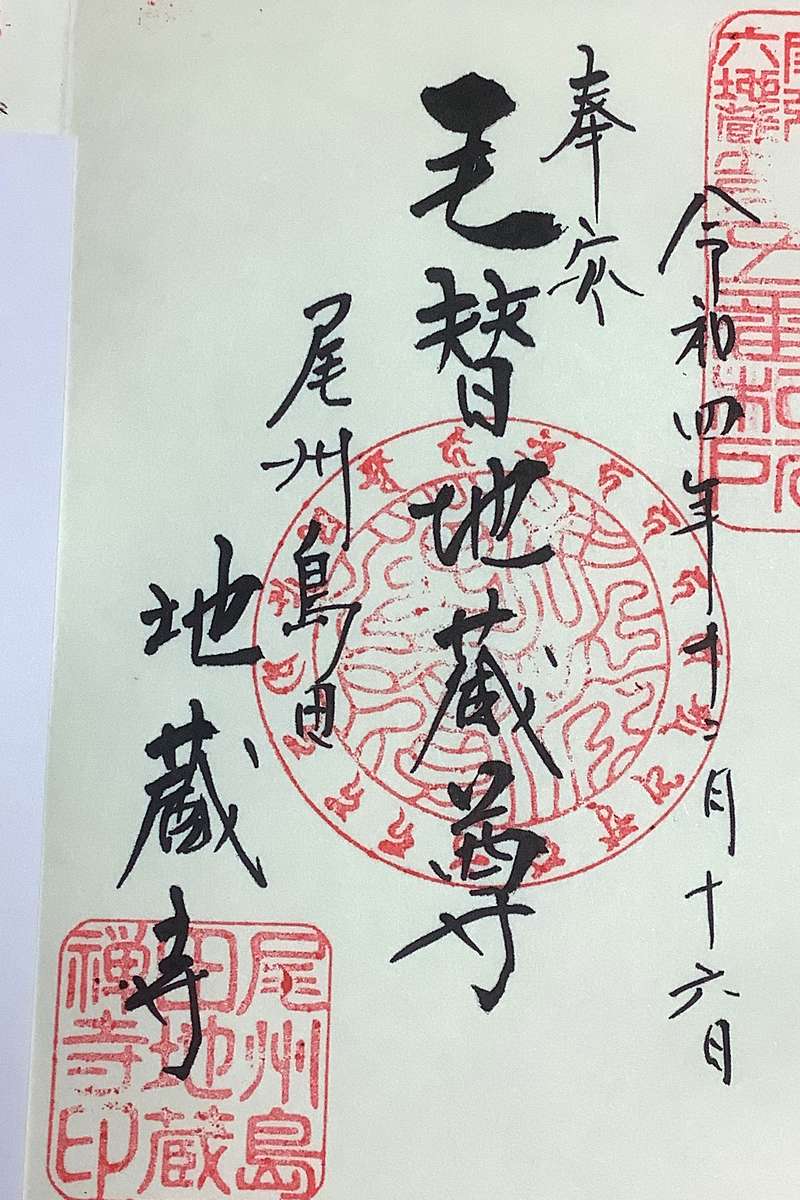 六地蔵
令和四年十二月十六日
奉
毛替地蔵尊
尾州島田
地蔵寺
尾州島
田地蔵
禅寺印